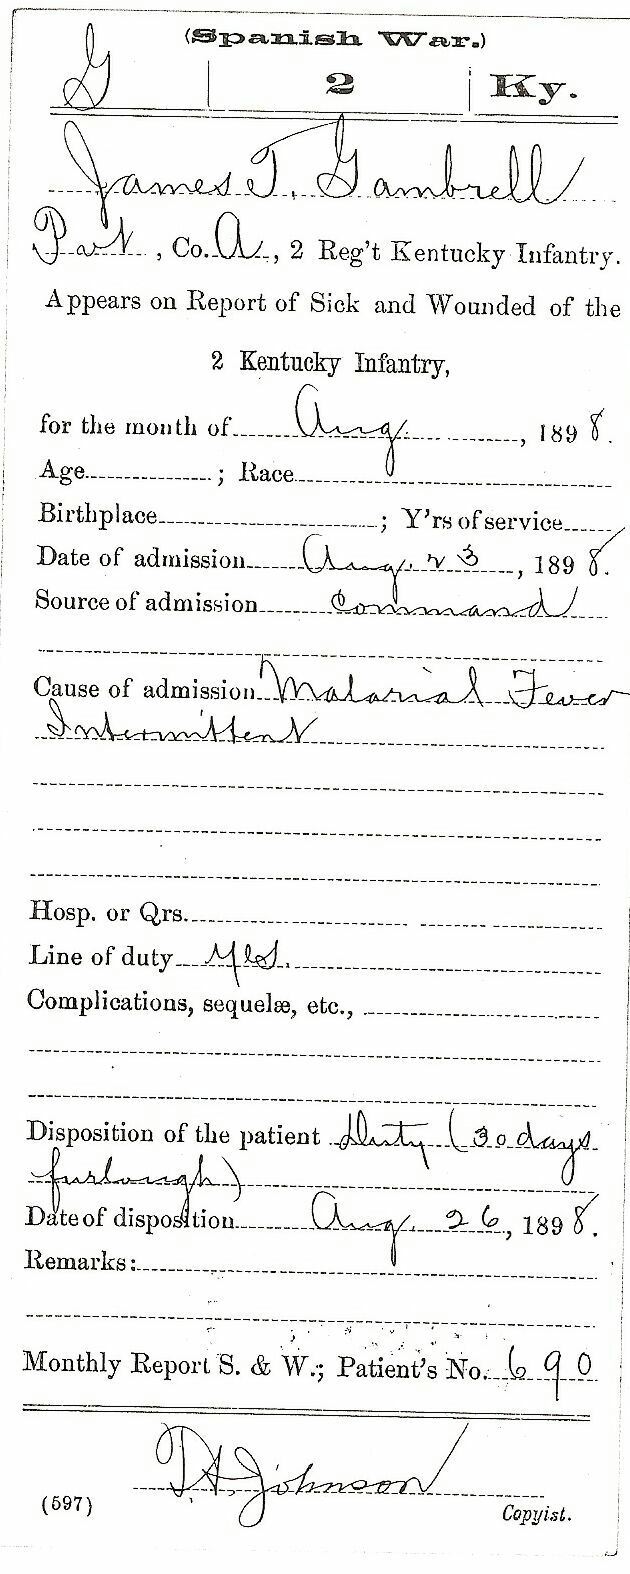 (Spanish War.)
G | 2 | Ky.
James T. Gambrell
Pvt, Co. A, 2 Reg't Kentucky Infantry.
Appears on Report of Sick and Wounded of the
2 Kentucky Infantry,
for the month of Aug., 1898.
Age ; Race
Birthplace ; Y'rs of service
Date of admission Aug. 23, 1898.
Source of admission Command
Cause of admission Malarial Fever
Intermittent
Hosp. or Qrs.
Line of duty Yes.
Complications, sequelæ, etc.,
Disposition of the patient Duty (30 days
furlough)
Date of disposition Aug. 26, 1898.
Remarks:
Monthly Report S. & W.; Patient's No. 690
Johnson
(597) Copyist.